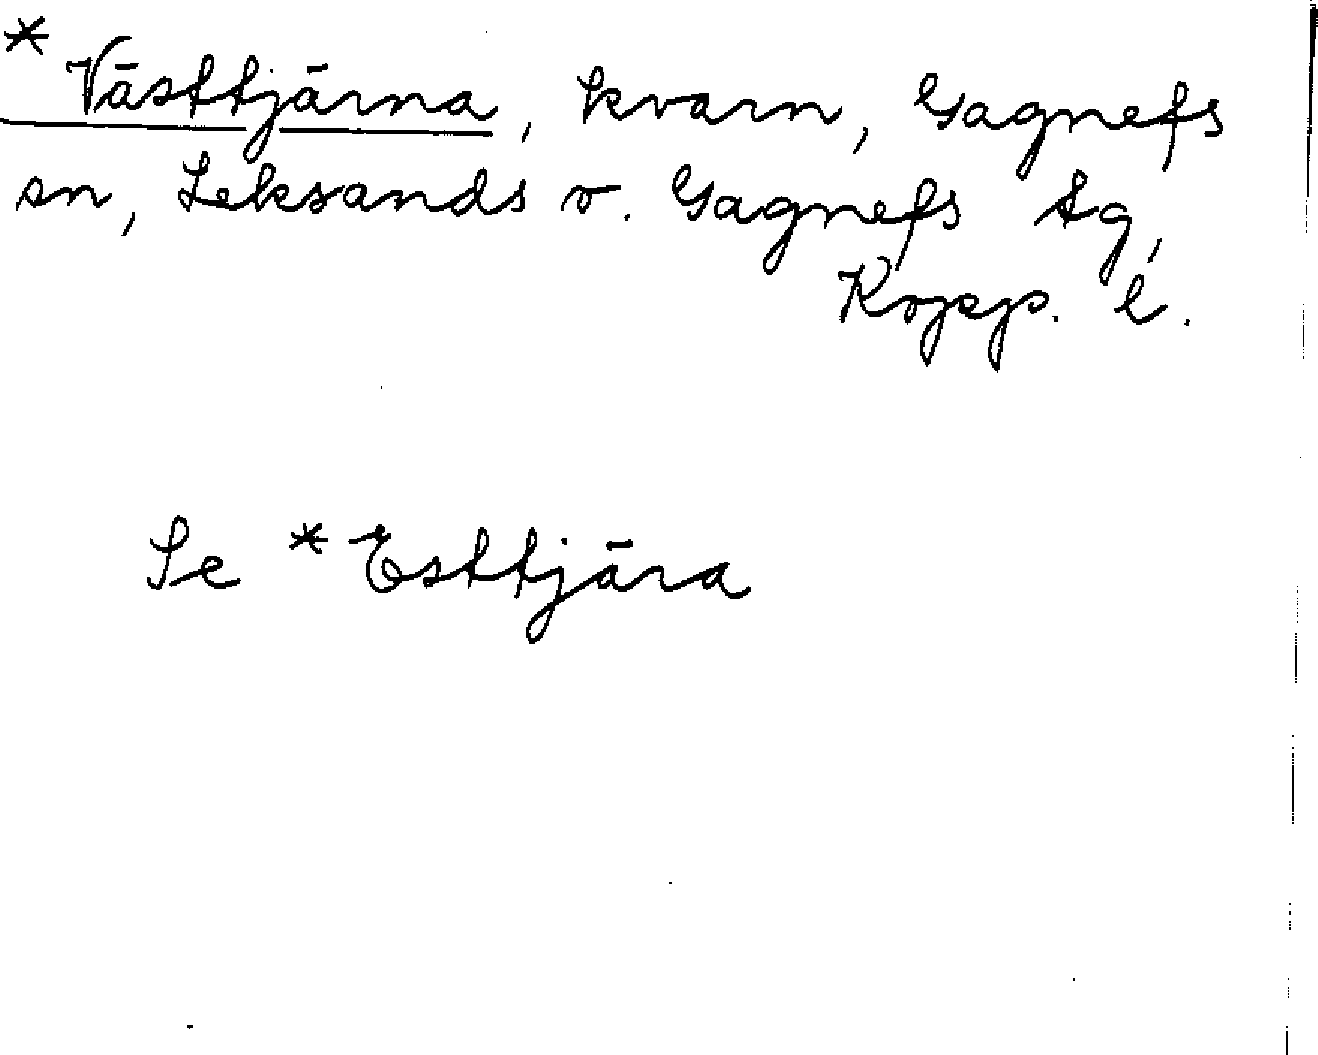 * Västtjärna, kvarn, Gagnefs
sn, Leksands o. Gagnefs tg,
Kopp. l.
Se * Esttjära